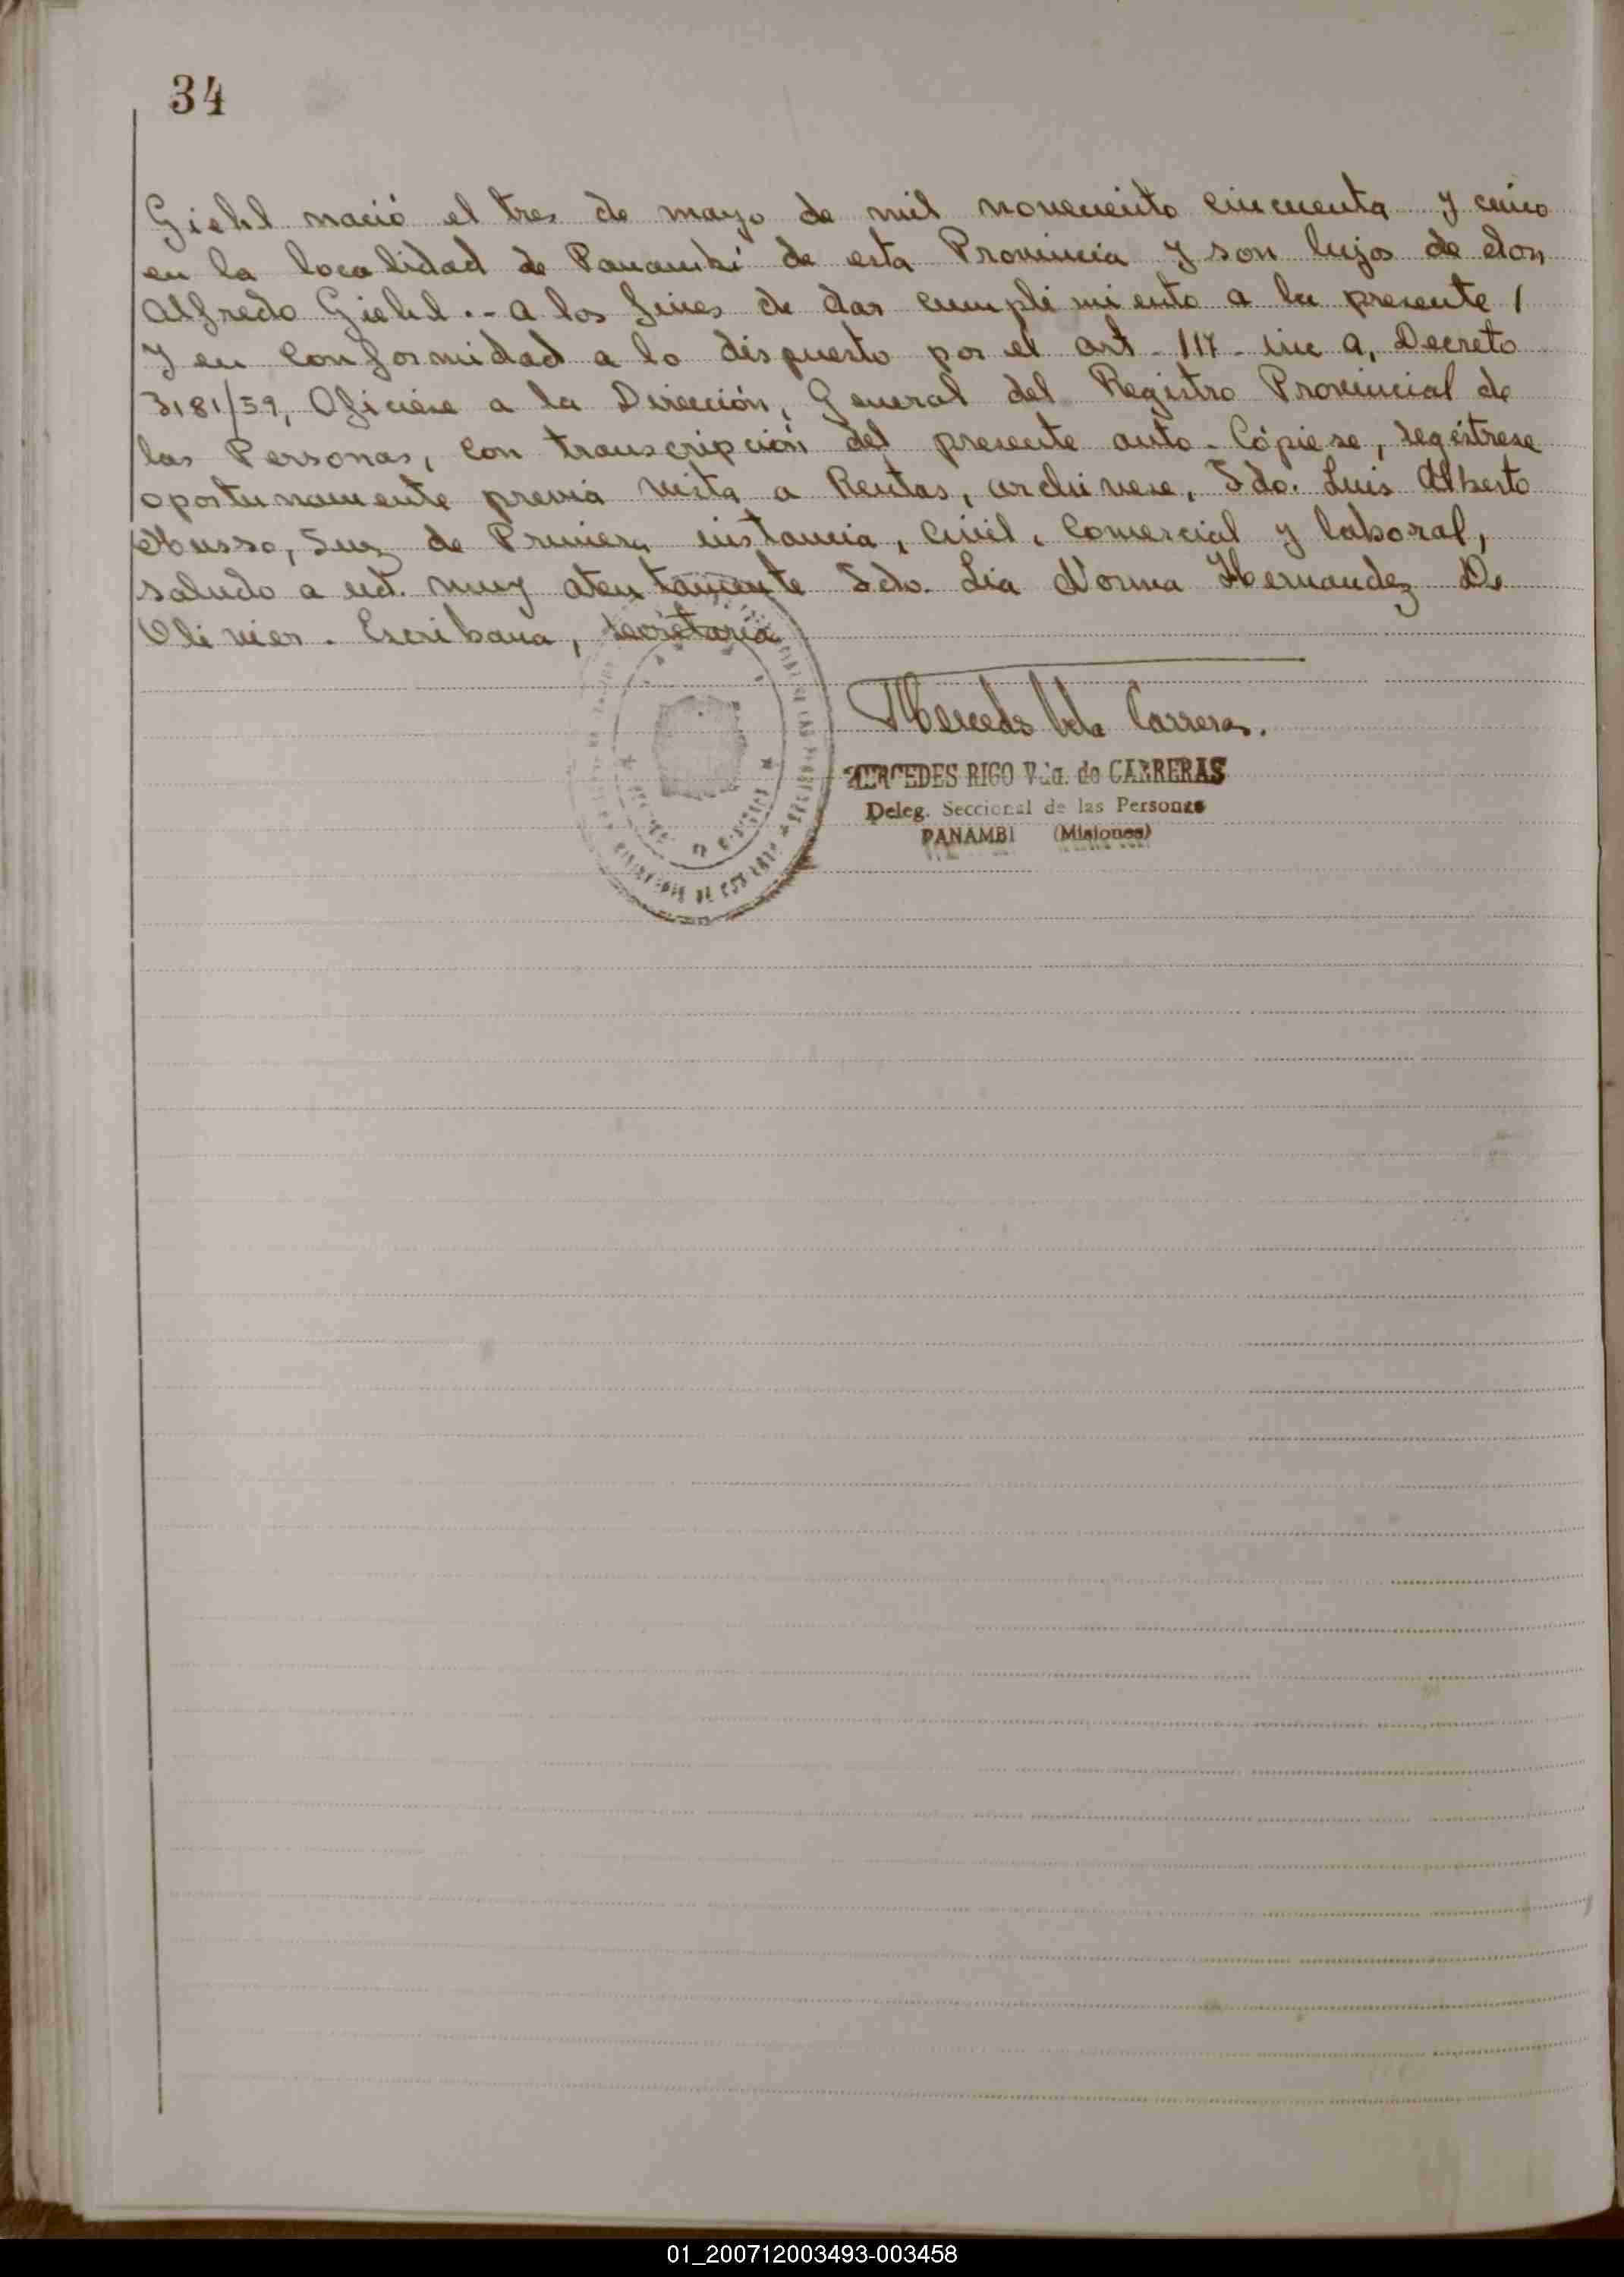 34
Giehl nació el tres de mayo de mil noveciento cincuenta y cinco
en la localidad de Panambí de esta Provincia y son hijos de don
Alfredo Giehl.- a los fines de dar cumplimiento a la presente /
y en conformidad a lo dispuesto por el art - 117 - inc a, Decreto
3181/59, Ofíciese a la Dirección, General del Registro Provincial de
las Personas, con transcripción del presente auto - Cópiese, regístrese
oportunamente previa vista a Rentas, archívese, Fdo. Luis Alberto
Musso, Juez de Primera instancia, Civil, Comercial y laboral,
saludo a ud. muy atentamente Fdo. Lia Norma Hernandez De
Olivier. Escribana, secretaria
Mercedes Vda Carreras.
MERCEDES RIGO Vda. de CARRERAS
Deleg. Seccional de las Personas
PANAMBI (Misiones)
01_200712003493-003458